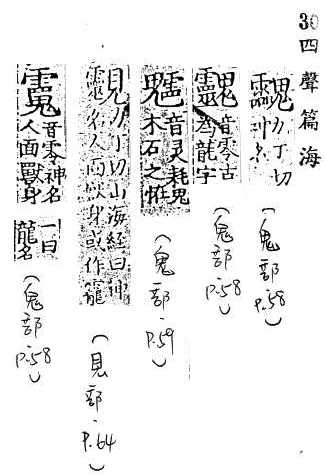 30 四聲篇海
力丁切神名
(鬼部 P.58)
音零古龍字
(鬼部 P.58)
音灵耗鬼木石之恠
(鬼部 P.59)
力丁切山海經曰神名人面獸身或作
(見部 P.64)
音零神名人面獸身 一曰龍名
(鬼部 P.58)